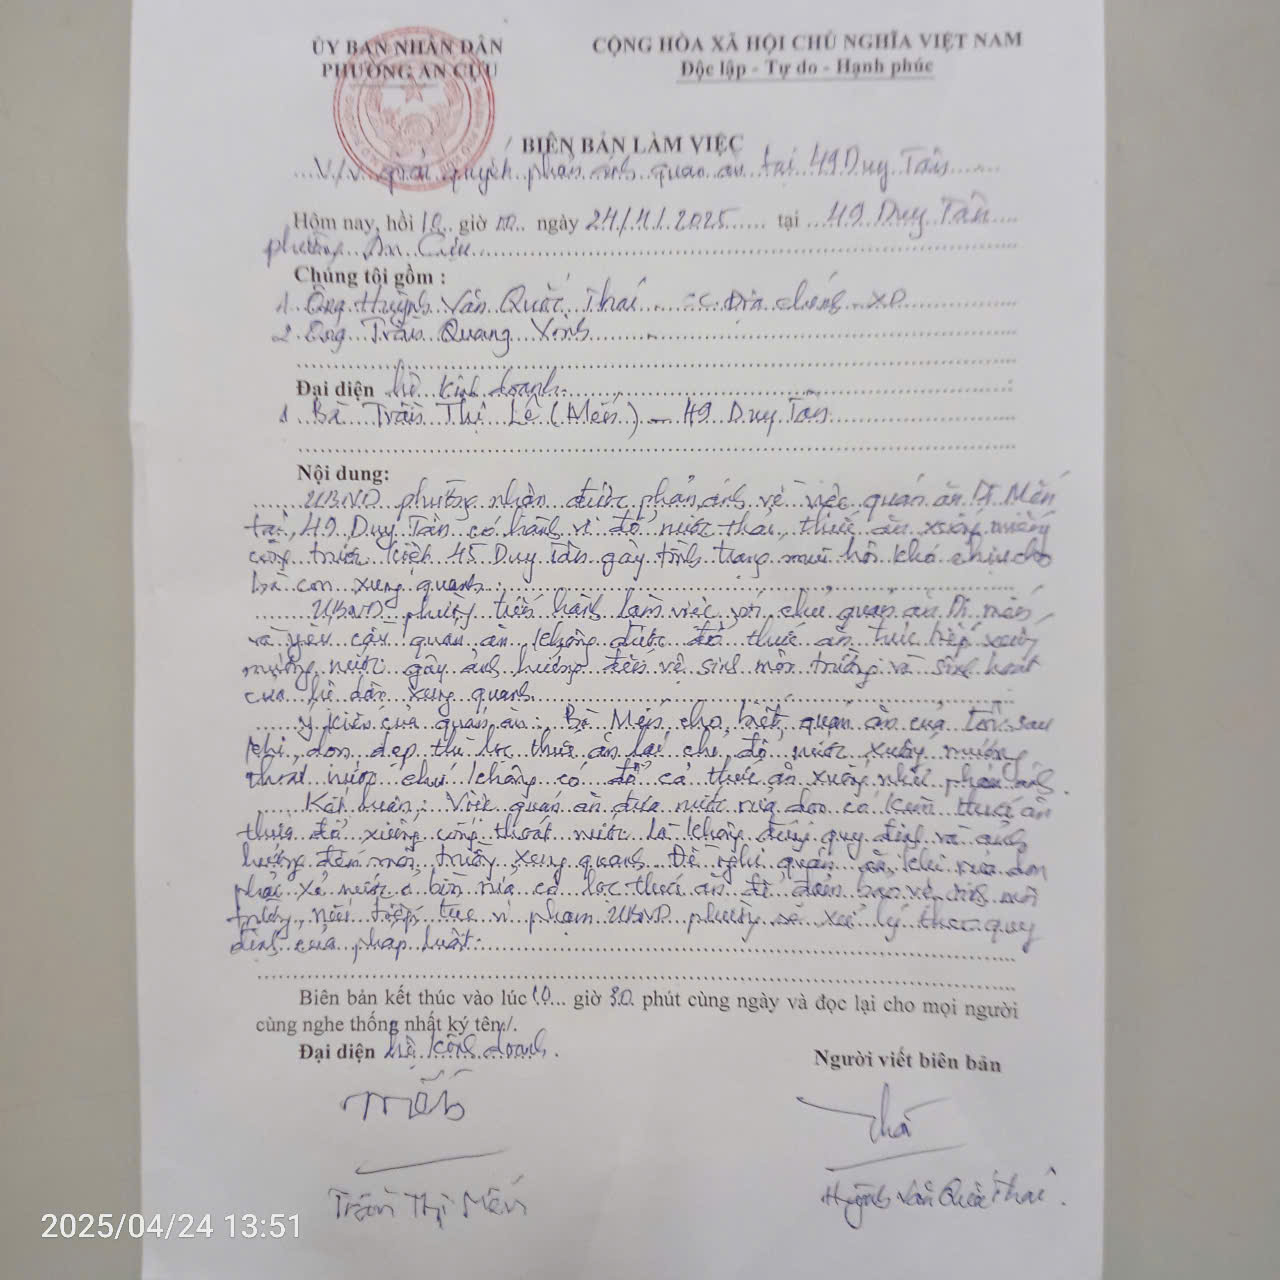 ỦY BAN NHÂN DÂN
PHƯỜNG AN CỰU
CỘNG HÒA XÃ HỘI CHỦ NGHĨA VIỆT NAM
Độc lập - Tự do - Hạnh phúc
BIÊN BẢN LÀM VIỆC
V/v giải quyết phản ánh quán ăn tại 49 Duy Tân
Hôm nay, hồi 10 giờ 00 ngày 24/4/2025 tại 49 Duy Tân
phường An Cựu
Chúng tôi gồm :
1. Ông Huỳnh Văn Quốc Thái - CC Địa chính - XD
2. Ông Trần Quang
Đại diện hộ kinh doanh
1. Bà Trần Thị Lê (Mến) - 49 Duy Tân
Nội dung:
UBND phường nhận được phản ánh về việc quán ăn Dì Mến
tại 49 Duy Tân có hành vi đổ nước thải, thức ăn xuống miệng
cống trước kiệt 45 Duy Tân gây tình trạng mùi hôi khó chịu cho
bà con xung quanh.
UBND phường tiến hành làm việc với chủ quán ăn Dì Mến
và yêu cầu quán ăn không được đổ thức ăn trực tiếp xuống
mương nước gây ảnh hưởng đến vệ sinh môi trường và sinh hoạt
của hộ dân xung quanh.
Ý kiến của quán ăn: Bà Mến cho biết quán ăn của tôi sau
khi dọn dẹp thì lọc thức ăn lại, chỉ đổ nước xuống mương
thoát nước chứ không có đổ cả thức ăn xuống như phản ánh.
Kết luận: Việc quán ăn đưa nước rửa dọn có kèm thức ăn
thừa đổ xuống cống thoát nước là không đúng quy định và ảnh
hưởng đến môi trường xung quanh. Đề nghị quán ăn khi rửa dọn
phải xả nước ở bồn rửa có lọc thức ăn để đảm bảo vệ sinh môi
trường, nếu tiếp tục vi phạm UBND phường sẽ xử lý theo quy
định của pháp luật.
Biên bản kết thúc vào lúc 10 giờ 30 phút cùng ngày và đọc lại cho mọi người
cùng nghe thống nhất ký tên./.
Đại diện hộ kinh doanh.
Người viết biên bản
Mến
Thái
Trần Thị Mến
Huỳnh Văn Quốc Thái.
2025/04/24 13:51